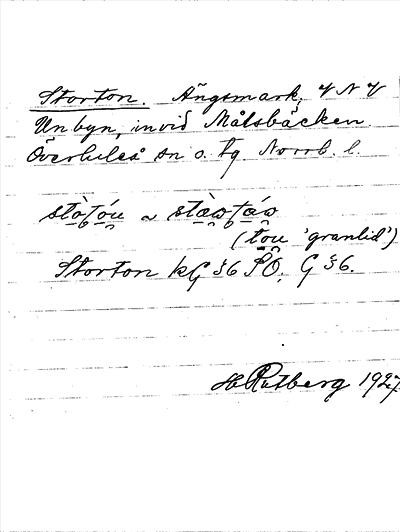 Storton. Ängsmark, V N V
Unbyn, invid Målsbäcken
Överluleå sn o. tg Norrb. l.
(tou 'granlid')
Storton kG 36 PO, G 36.
H Rutberg 1927